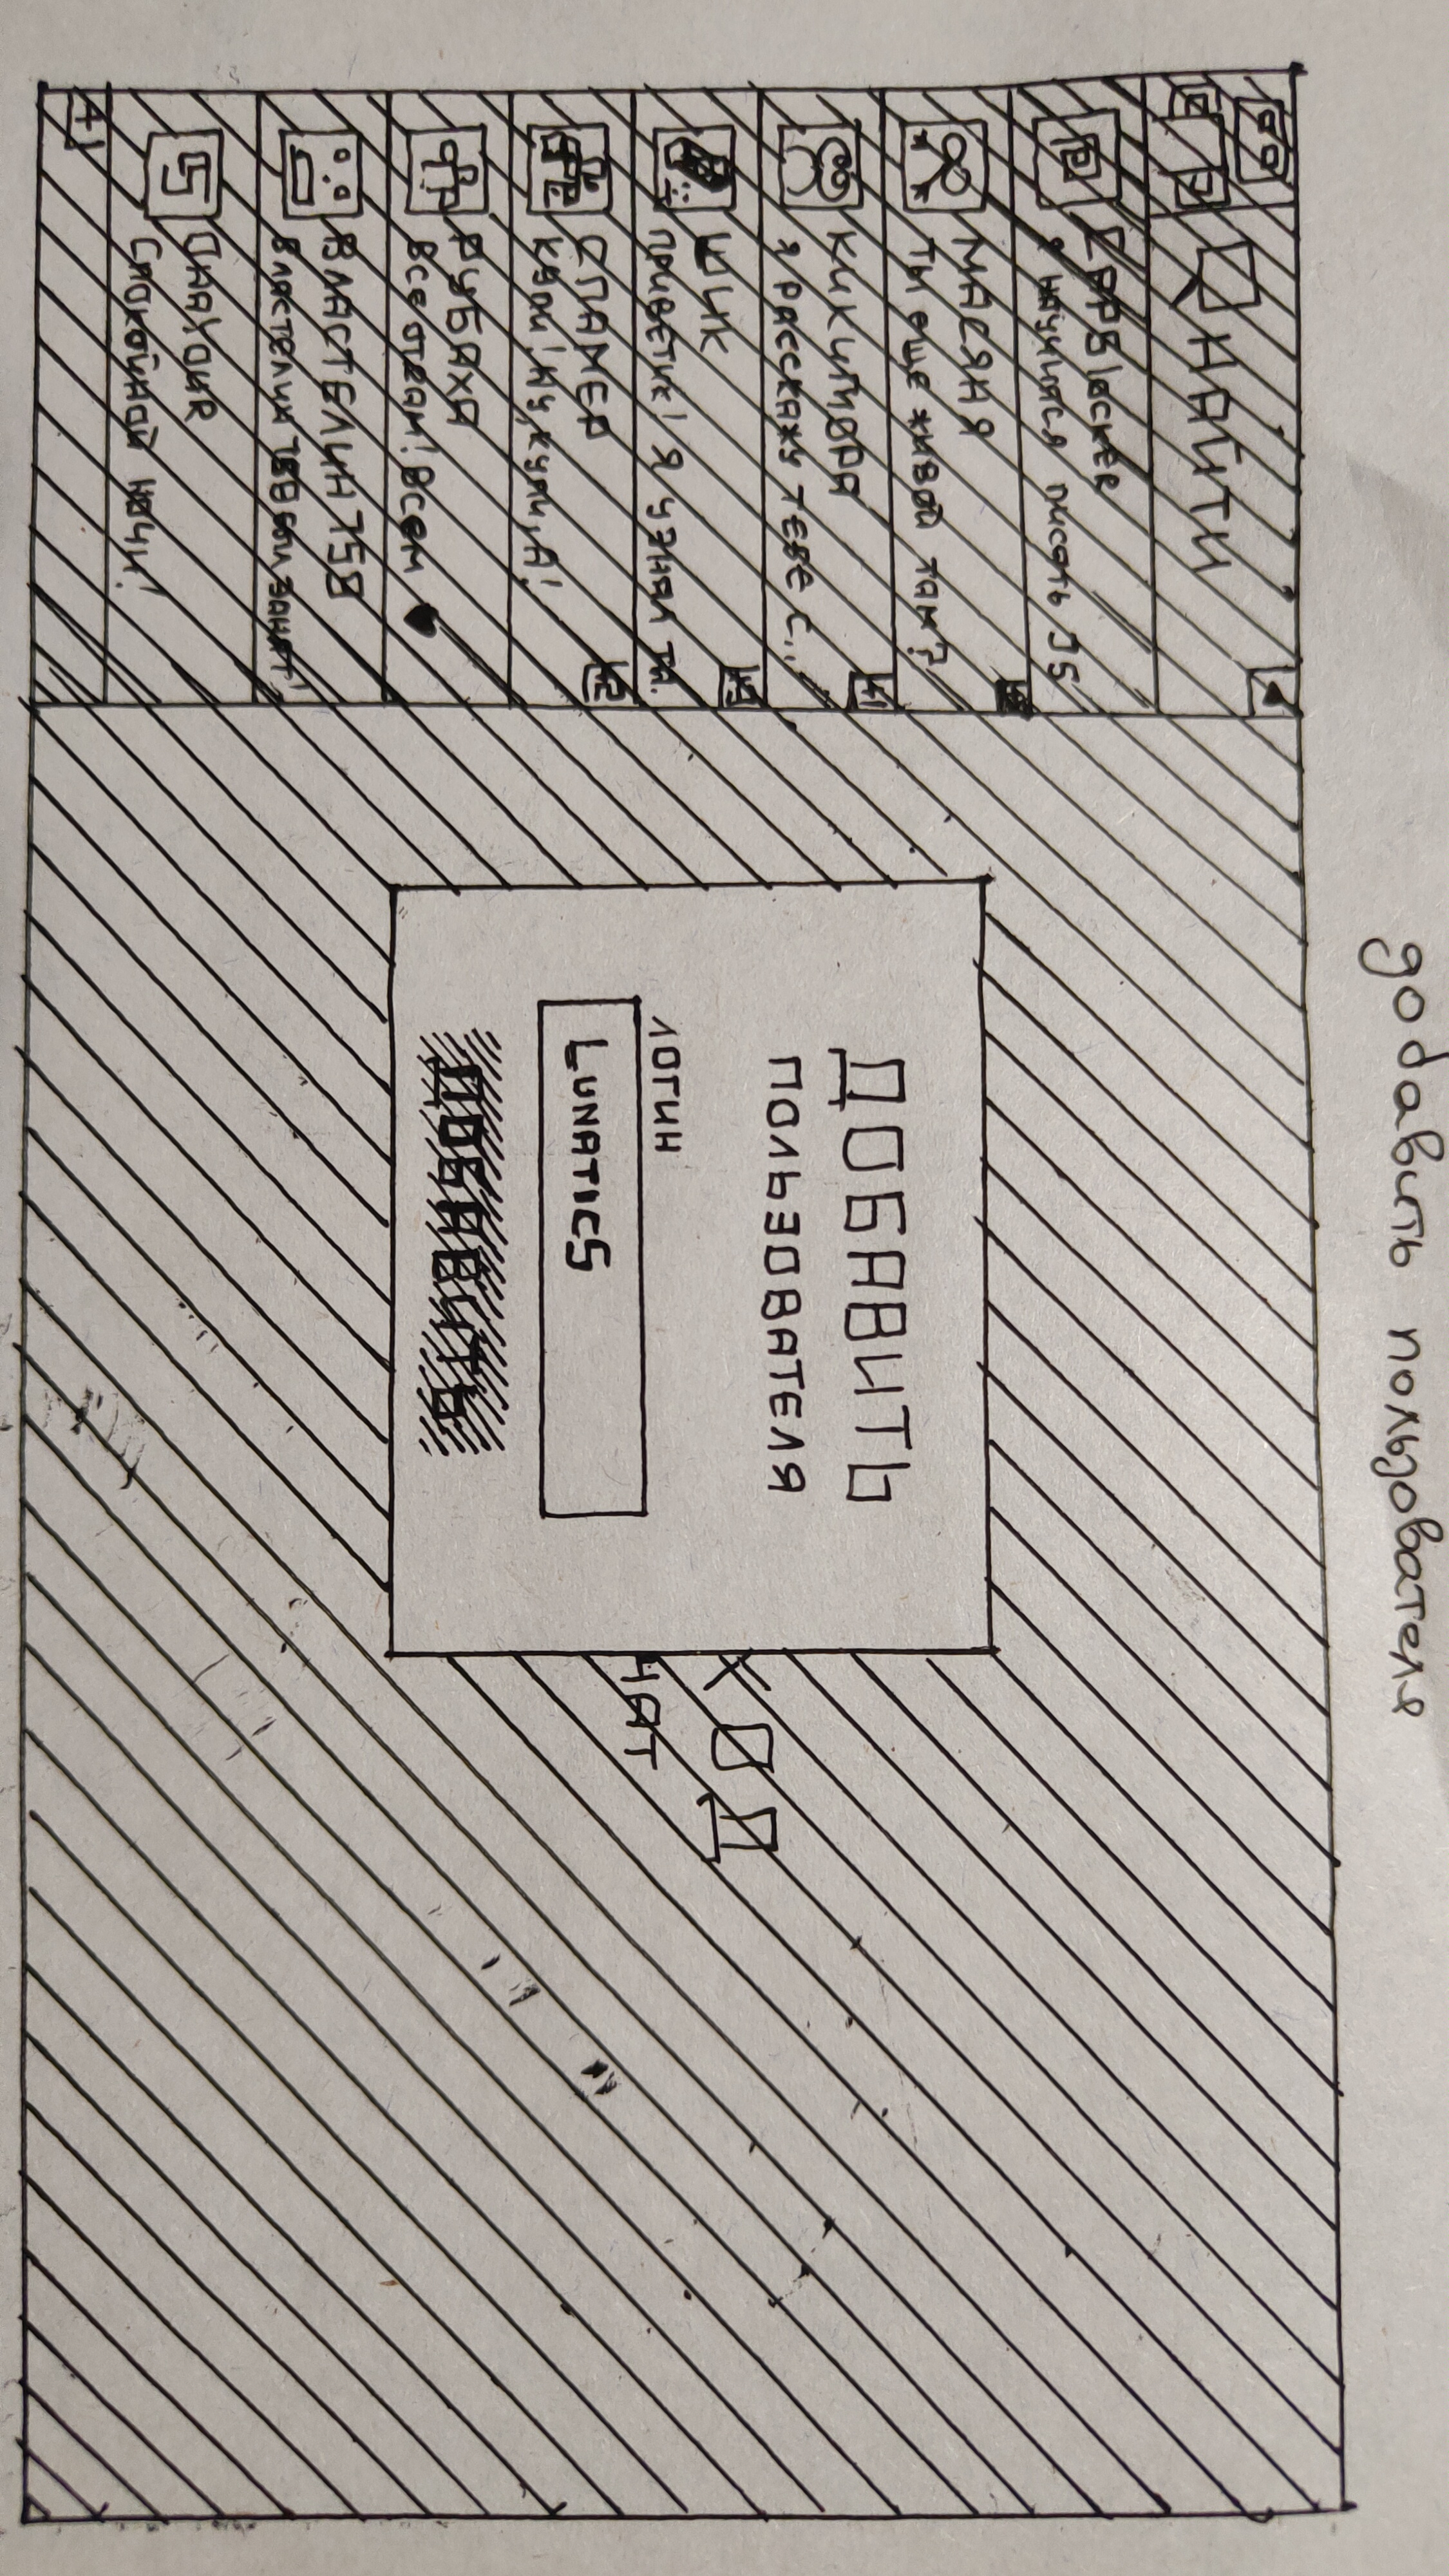 добавить пользователя
НАЙТИ
CAPSlocker
Я научился писать JS
МАСЯНЯ
Ты еще живой там?
+1
КИКИМОРА
Я РАССКАЖУ ТЕБЕ С..
+3
ШИК
ПРИВЕТИК! Я УЗНАЛ ТА.
+2
СПАМЕР
КУПИ! НУ, КУПИ, А!
РУБАХА
Всем ♥
ВЛАСТЕЛИН 758
Властелин 758 был занят!
OHAYOUR
Спокойной ночи!
+1
ДОБАВИТЬ
ПОЛЬЗОВАТЕЛЯ
ЛОГИН
LUNATICS
ДОБАВИТЬ
КОД
ЧАТ